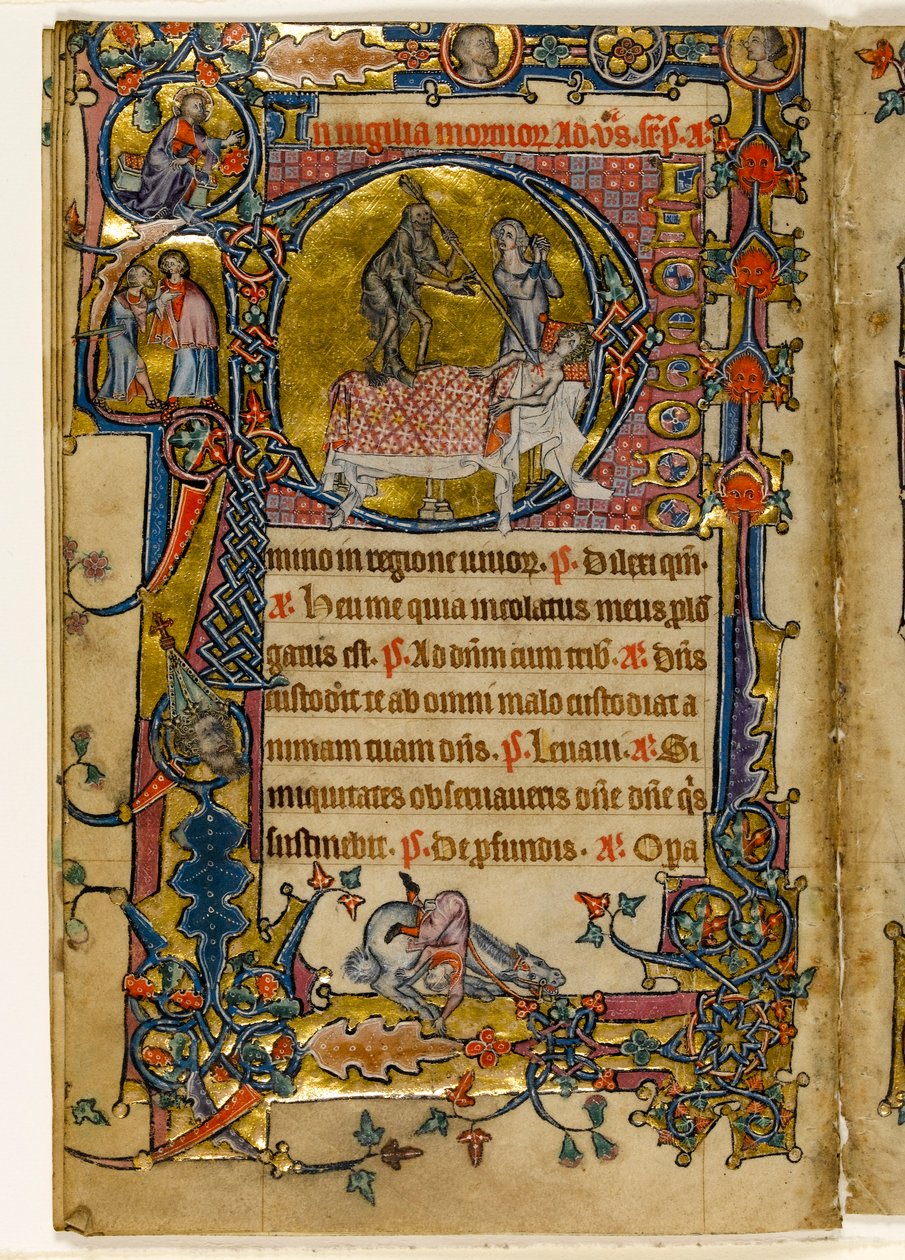 In uigilia mortuoꝝ Ad. v̄s.
P
LACEBO DO
mino in regione uiuoꝝ. p̄. Dilexi qm̄.
A. Heu me quia incolatus meus ꝓlō
gatus est. p̄. Ad dn̄m cum trib̄. A. Dn̄s
custodit te ab omni malo custodiat a
nimam tuam dn̄s. p̄. Leuaui. A. Si
iniquitates obseruaueris dn̄e dn̄e q̄s
sustinebit. p̄. De ꝓfundis. A. Opa